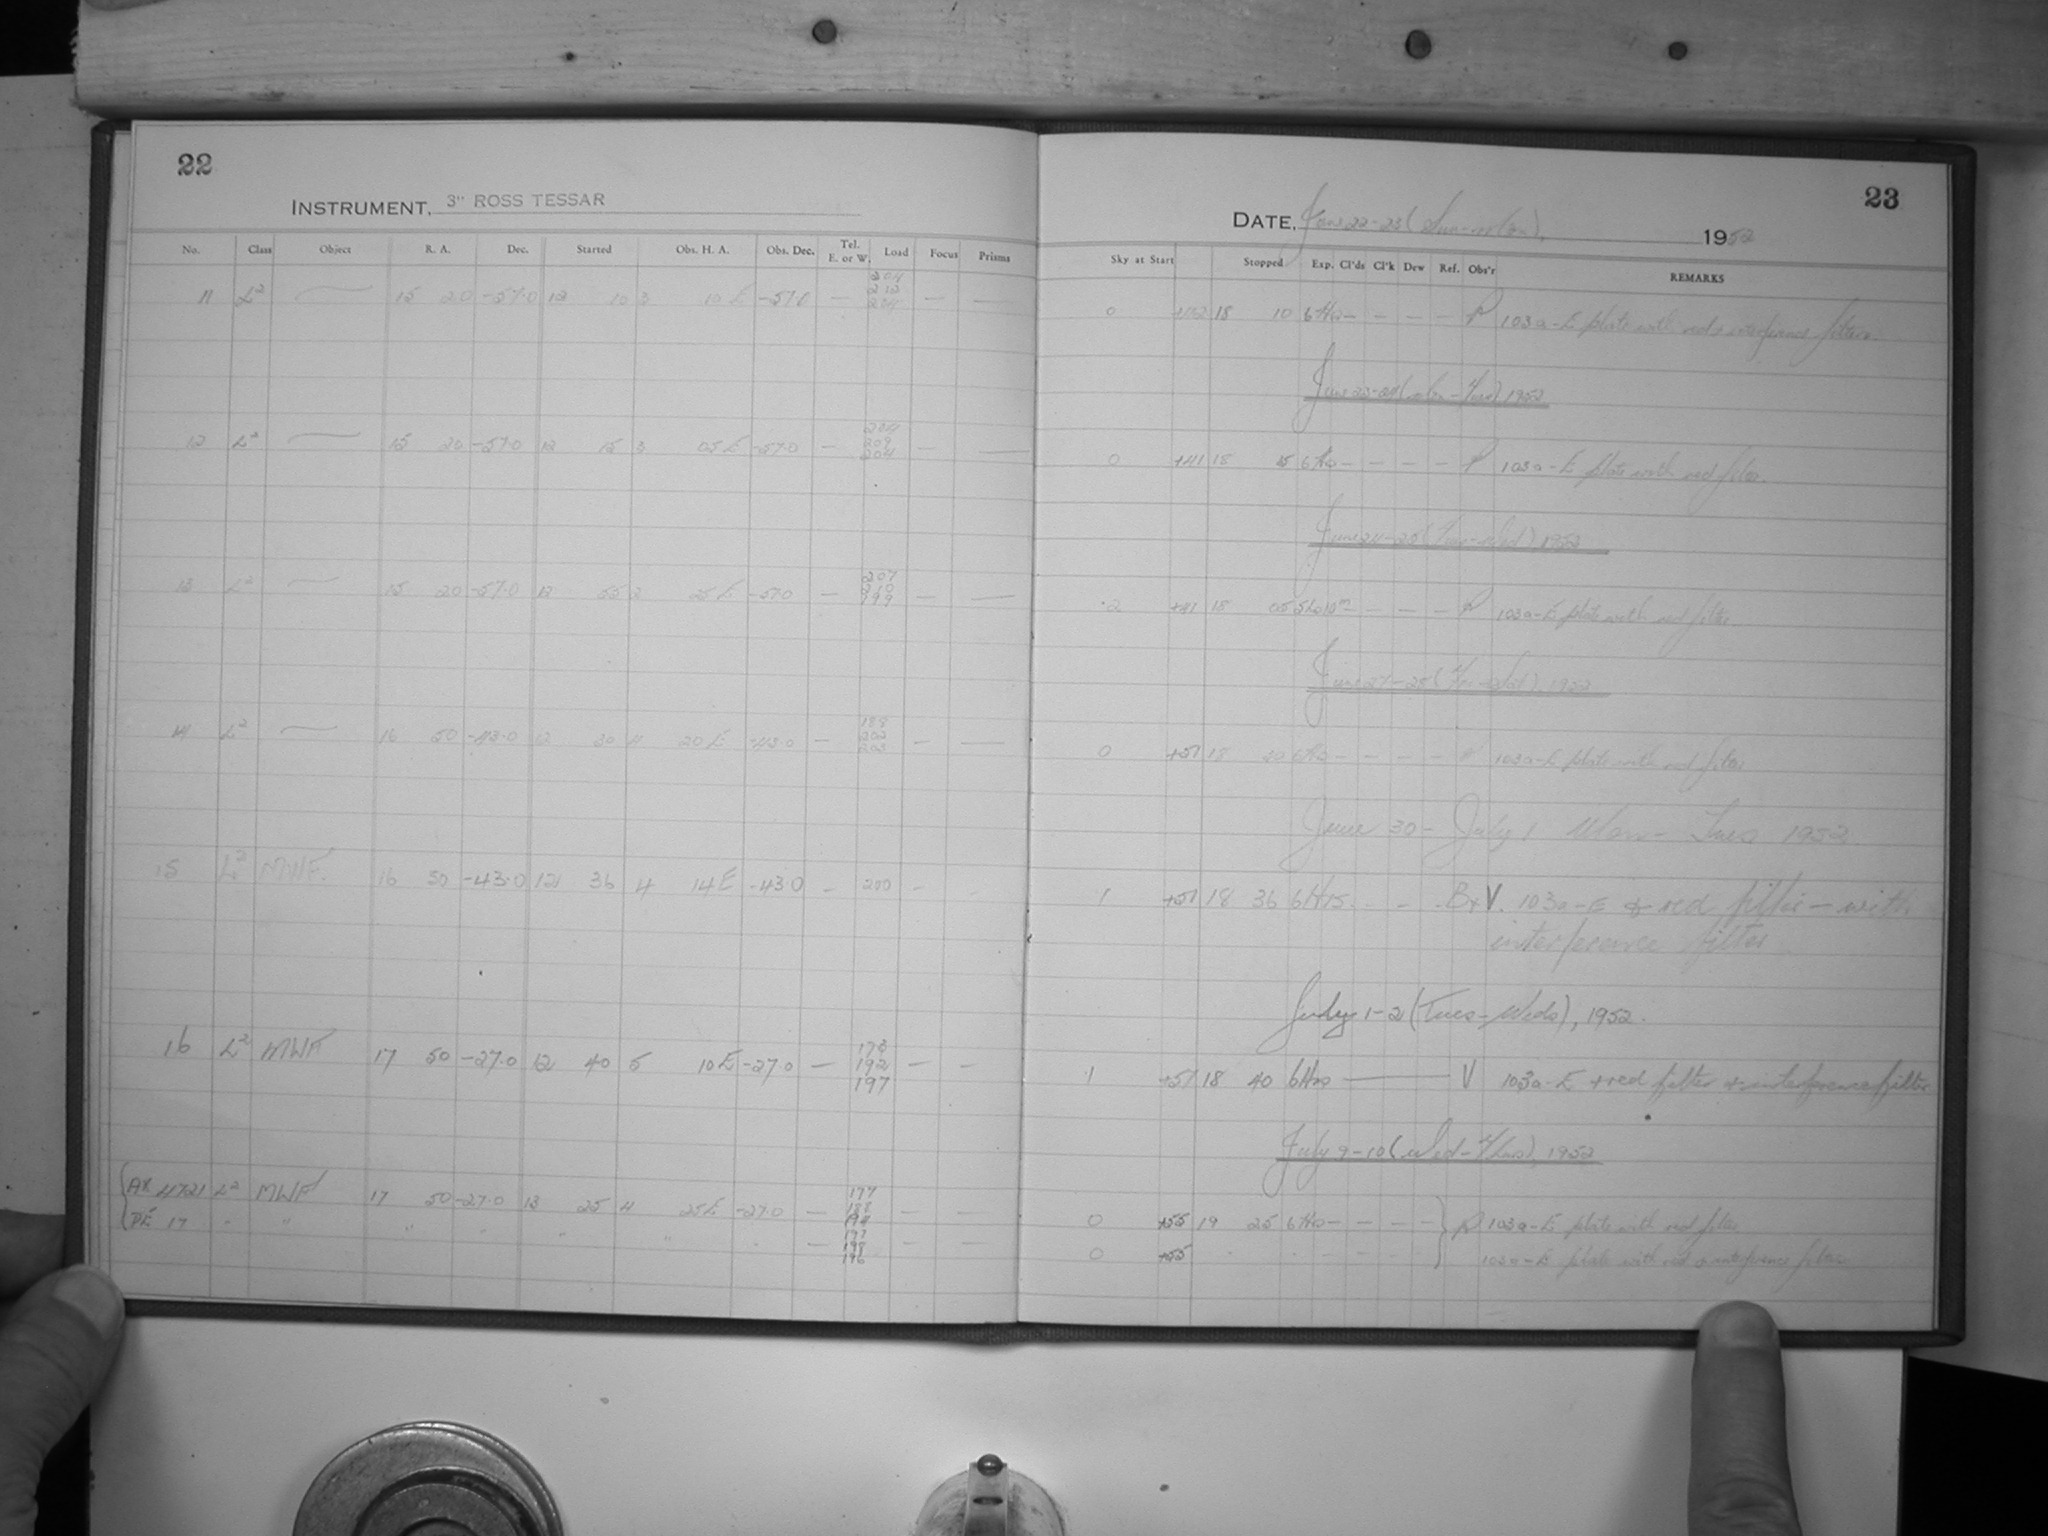 22
INSTRUMENT, 3" ROSS TESSAR
No. Class Object R. A. Dec. Started Obs. H. A. Obs. Dec. Tel. E. or W. Load Focus Prisms
11 L2 — 15 20 -57.0 12 10 3 10 E -57.0 — — —
12 L2 — 15 20 -57.0 12 15 3 05 E -57.0 — 204 209 204 — —
13 L2 — 15 20 -57.0 12 55 2 25 E -57.0 — 207 210 199 — —
14 L2 — 16 50 -43.0 12 30 4 20 E -43.0 — 198 202 203 — —
15 L2 MWF. 16 50 -43.0 12 36 4 14 E -43.0 — 200 - -
16 L2 MWF 17 50 -27.0 12 40 5 10 E -27.0 — 178 192 197 — —
AX 4721 L2 MWF 17 50 -27.0 13 25 4 25 E -27.0 — 177 188 194 — —
PE 17 - " " - " " - — 177 198 196 — —
23
DATE, June 22-23 (Sun-Mon), 1952
Sky at Start Stopped Exp. Cl'ds Cl'k Dew Ref. Obs'r REMARKS
0 18 10 6 Hrs — — — — P 103a-E plate with red & interference filters
June 23-24 (Mon-Tues), 1952
0 +41 18 15 6 Hrs — — — — P 103a-E plate with red filter
June 24-25 (Tues-Wed), 1952
2 +41 18 05 5 Hrs 10m — — — P 103a-E plate with red filter
June 27-28 (Fri-Sat), 1952
0 +51 18 30 6 Hrs — — — — 103a-E plate with red filter
June 30 - July 1 Mon - Tues 1952.
1 +51 18 36 6 Hrs. - - - B+V. 103a-E & red filter — with
interference filter
July 1-2 (Tues-Weds), 1952.
1 +51 18 40 6 Hrs — V 103a-E + red filter + interference filter
July 9-10 (Wed-Thurs), 1952
0 +55 19 25 6 Hrs — — — — P 103a-E plate with red filter
0 +55 - - - - - - 103a-E plate with red & interference filter